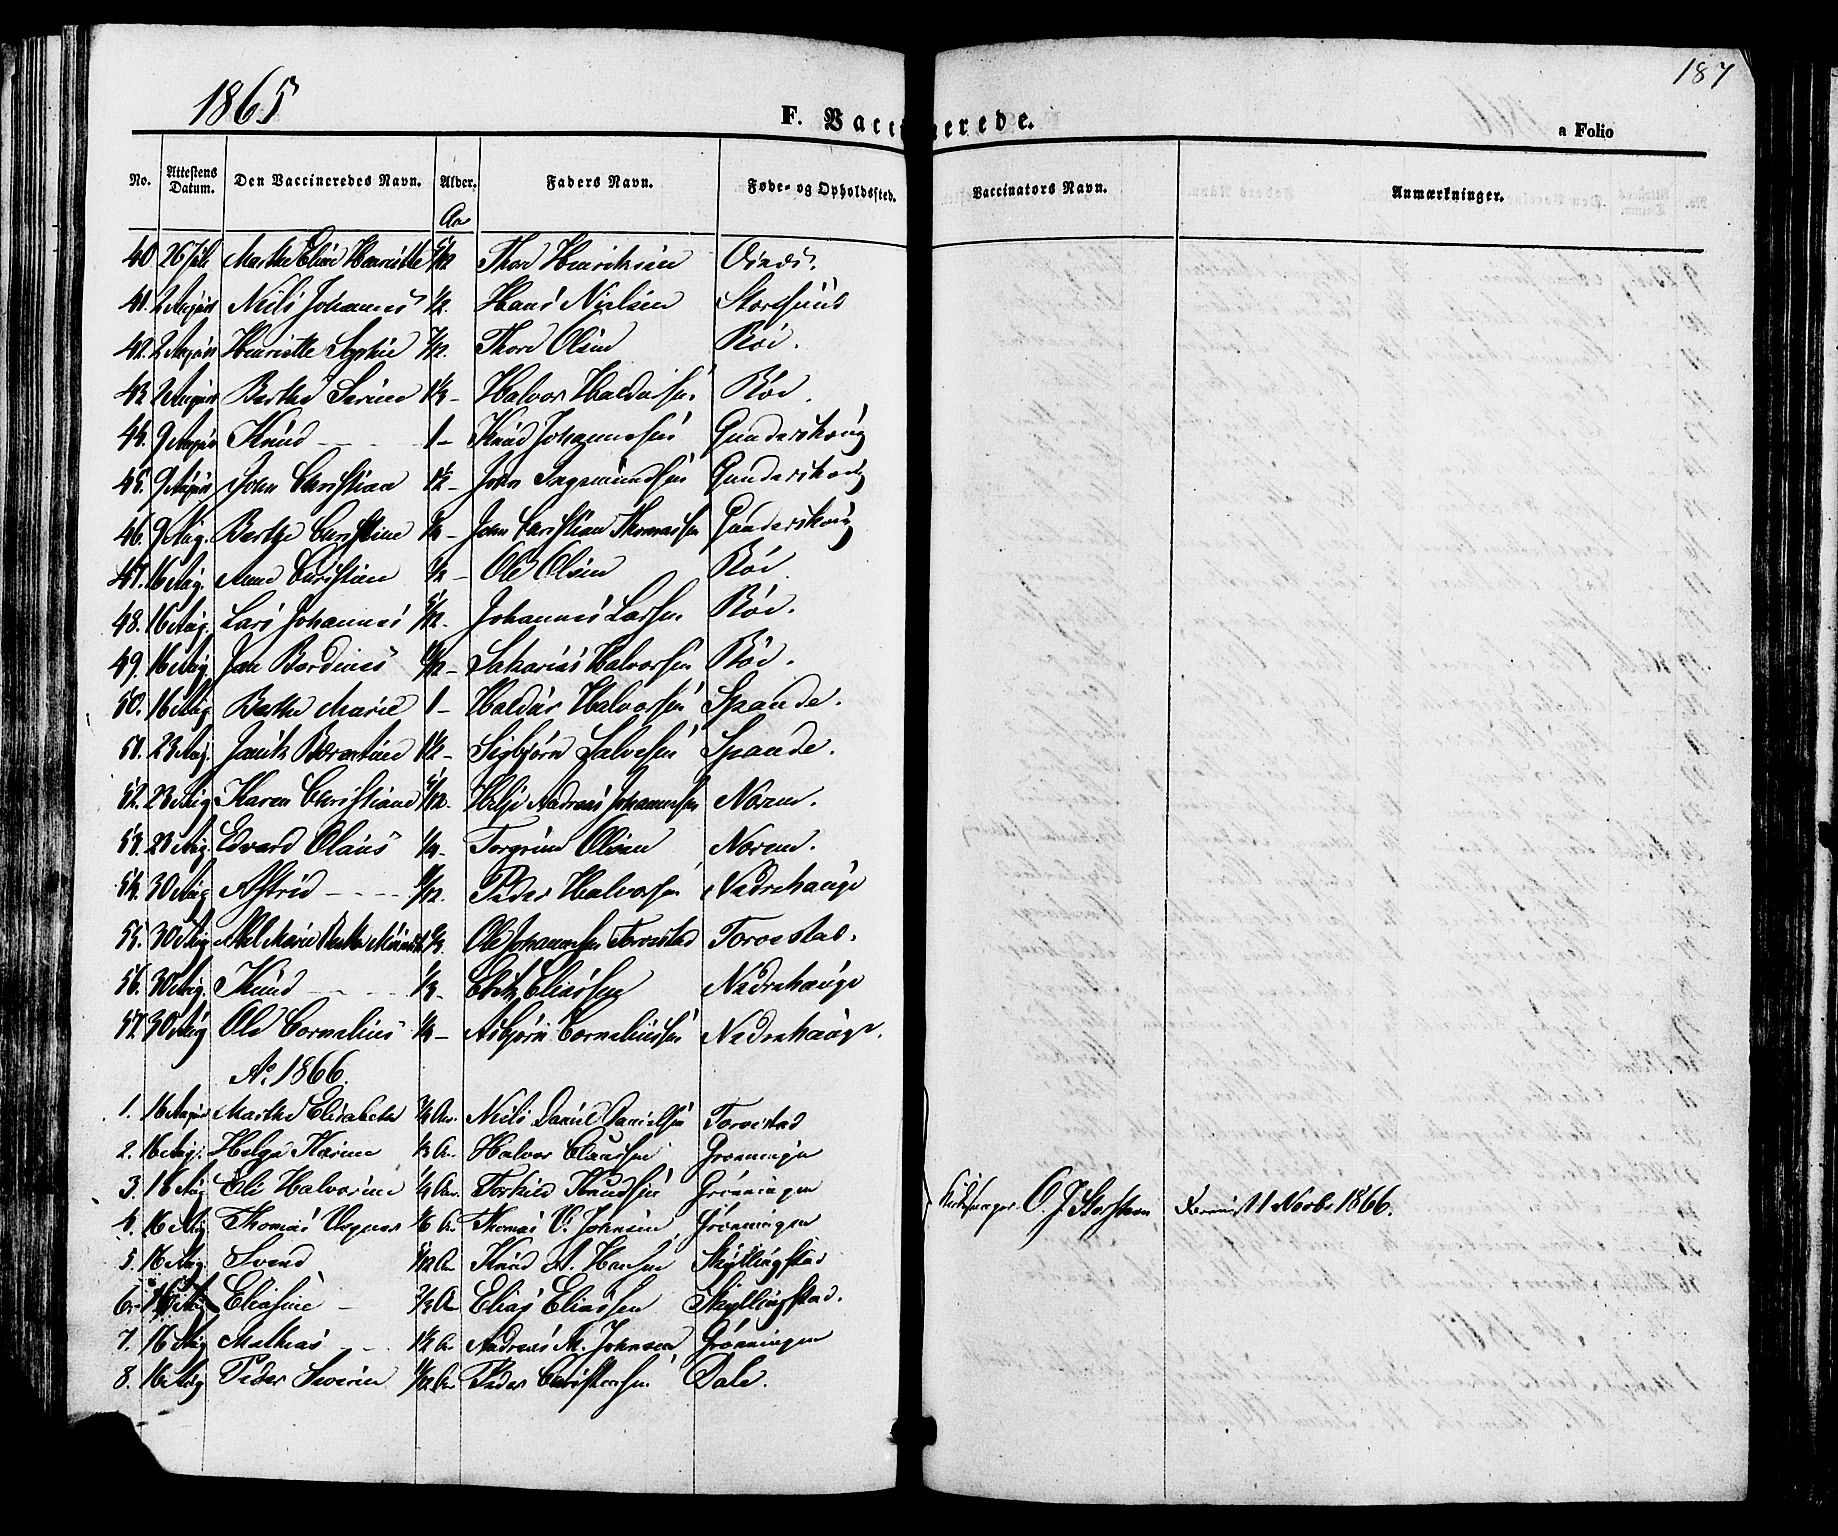 1865
187
F. Vaccinerede.
a Folio
No. Attestens Datum. Den Vaccineredes Navn. Alder. Faders Navn. Føde- og Opholdssted. Vaccinators Navn. Anmærkninger.
Aar
40 26 Juli Marthe Eline Henriette 5/12 Thore Henriksen
41. 2 August Niels Johannes 1/2. Hans Nielsen Storesund
42. 2 August Henriette Sophie 7/12. Thore Olsen Röe.
43. 2 August Berthe Serine Halvor Röe.
9 August Knud 1 - Knud Johannesen Gunderskoug
45. 9 August John Christian 1/2 - John Gunderskoug
46. 9 Aug. Berthe Christine John Christian Thomassen Gunderskoug
47. 16 Aug. Anne Christine 1/2 - Ole Olsen Röe
48. 16 Aug. Lars Johannes 5/12. Johannes Larsen Röe.
49. 16 Aug Jan Bardines Sakarias Halvorsen Röe.
50. 16 Aug Berthe Marie 1 - Haldor Halvorsen Spande.
51. 23 Aug. Sigbjørn Salvesen Spande.
52. 23 Aug Karen Christiane 5/12. Helje Andreas Johannesen Norem.
53. 23 Aug. Edvard Olaus 1/4 - Torgrim Olsen Norem.
54. 30 Aug Astrid - - - - Peder Halvorsen Nedrehauge
55. 30 Aug Marie Berthe Ole Johannesen Torvestad Torvestad.
56. 30 Aug. Knud - - - 1/3. Eliassen Nedrehauge
57. 30 Aug Ole Cornelius 1/4 - Asbjørn Corneliussen Nedrehauge.
Ao. 1866.
1. 16 August Marthe Elisabeth 3/4 Aar. Niels Daniel Danielsen Torvestad
2. 16 Aug. Helga Karine 1/3 A. Halvor Claussen Grønningen
3. 16 Aug Eli Halvorine 1/4 Aar. Torkild Knudsen Grønningen
4. 16 Aug Thomas Vegner 1/6 A. Thomas V. Johnsen Grønningen
Kirkesanger O. J. Storsteen 11 Novbr 1866.
5. 16 Aug. Svend 5/12 A. Knud A. Hansen Skyllingstad
6. 16 Aug Eliasine - 2/3 A Elias Eliassen Skyllingstad.
7. 16 Aug Mathias - - 1 1/2 A. Andreas M. Johnsen Grønningen
8. 16 Aug Peder Severin Peder Christensen Dale.